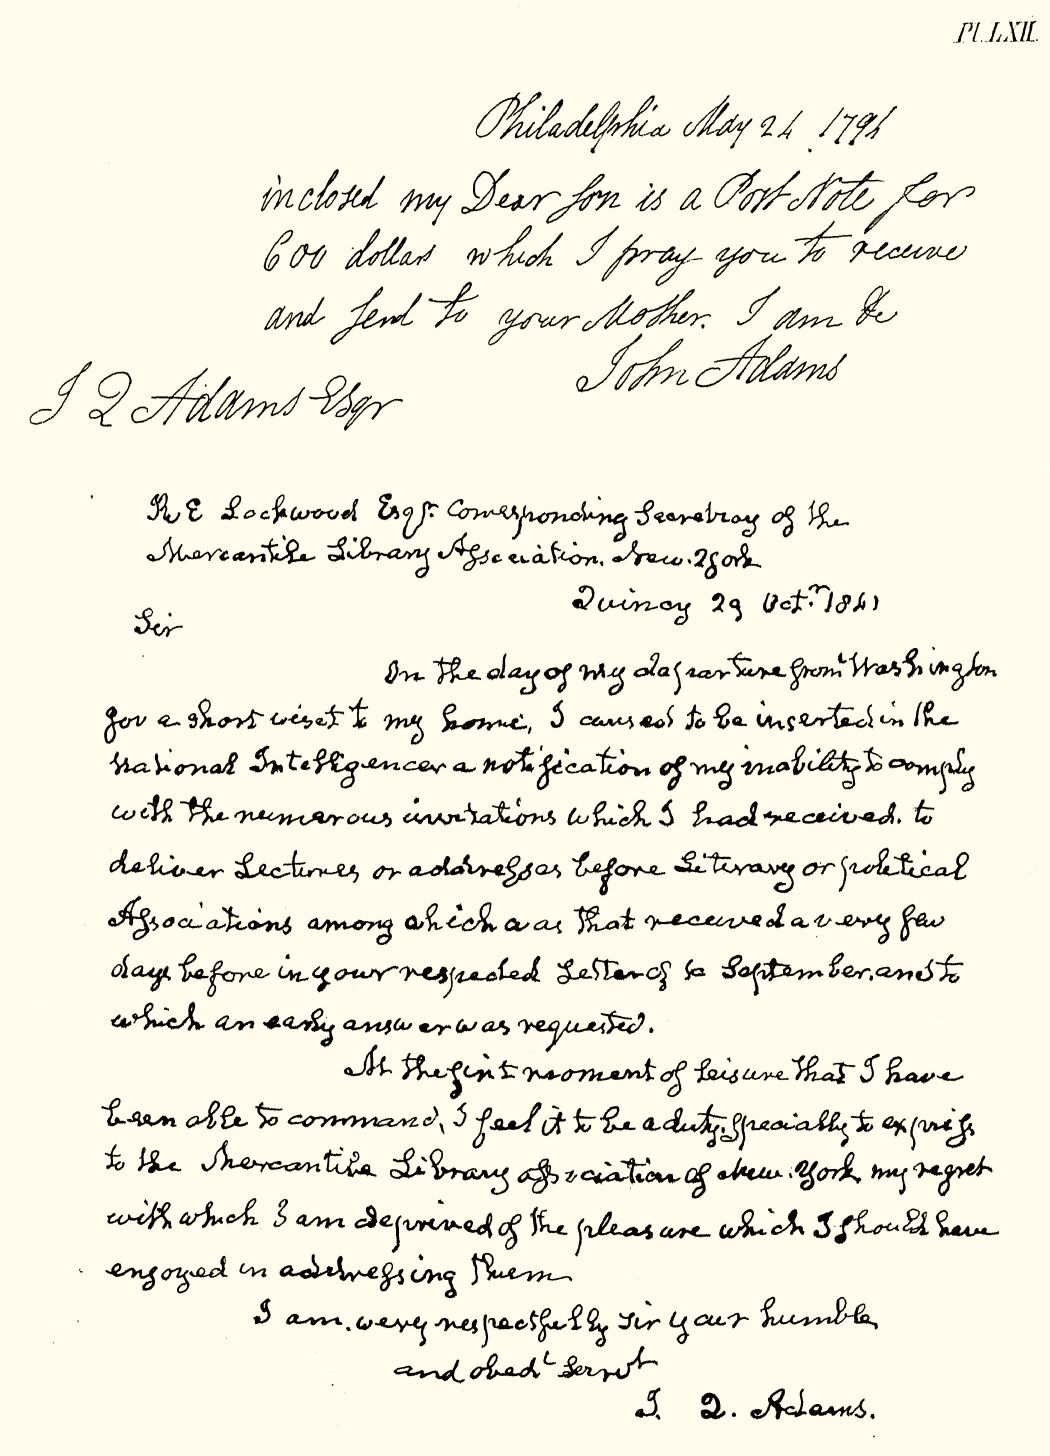 Pl. LXII.
Philadelphia May 24 1794
inclosed my Dear Son is a Post Note for
600 dollars which I pray you to receive
and send to your Mother. I am &c
John Adams
J Q Adams Esqr
R E Lockwood Esqr. Corresponding Secretary of the
Mercantile Library Association. New-York
Quincy 29 Octr. 1841
Sir
On the day of my departure from Washington
for a short visit to my home, I caused to be inserted in the
National Intelligencer a notification of my inability to comply
with the numerous invitations which I had received, to
deliver Lectures or addresses before Literary or political
Associations among which was that received a very few
days before in your respected Letter of September, and to
which an early answer was requested.
At the first moment of leisure that I have
been able to command, I feel it to be a duty specially to express
to the Mercantile Library association of New-York, my regret
with which I am deprived of the pleasure which I should have
enjoyed in addressing them
I am, very respectfully Sir your humble
and obedt Servt
J. Q. Adams.